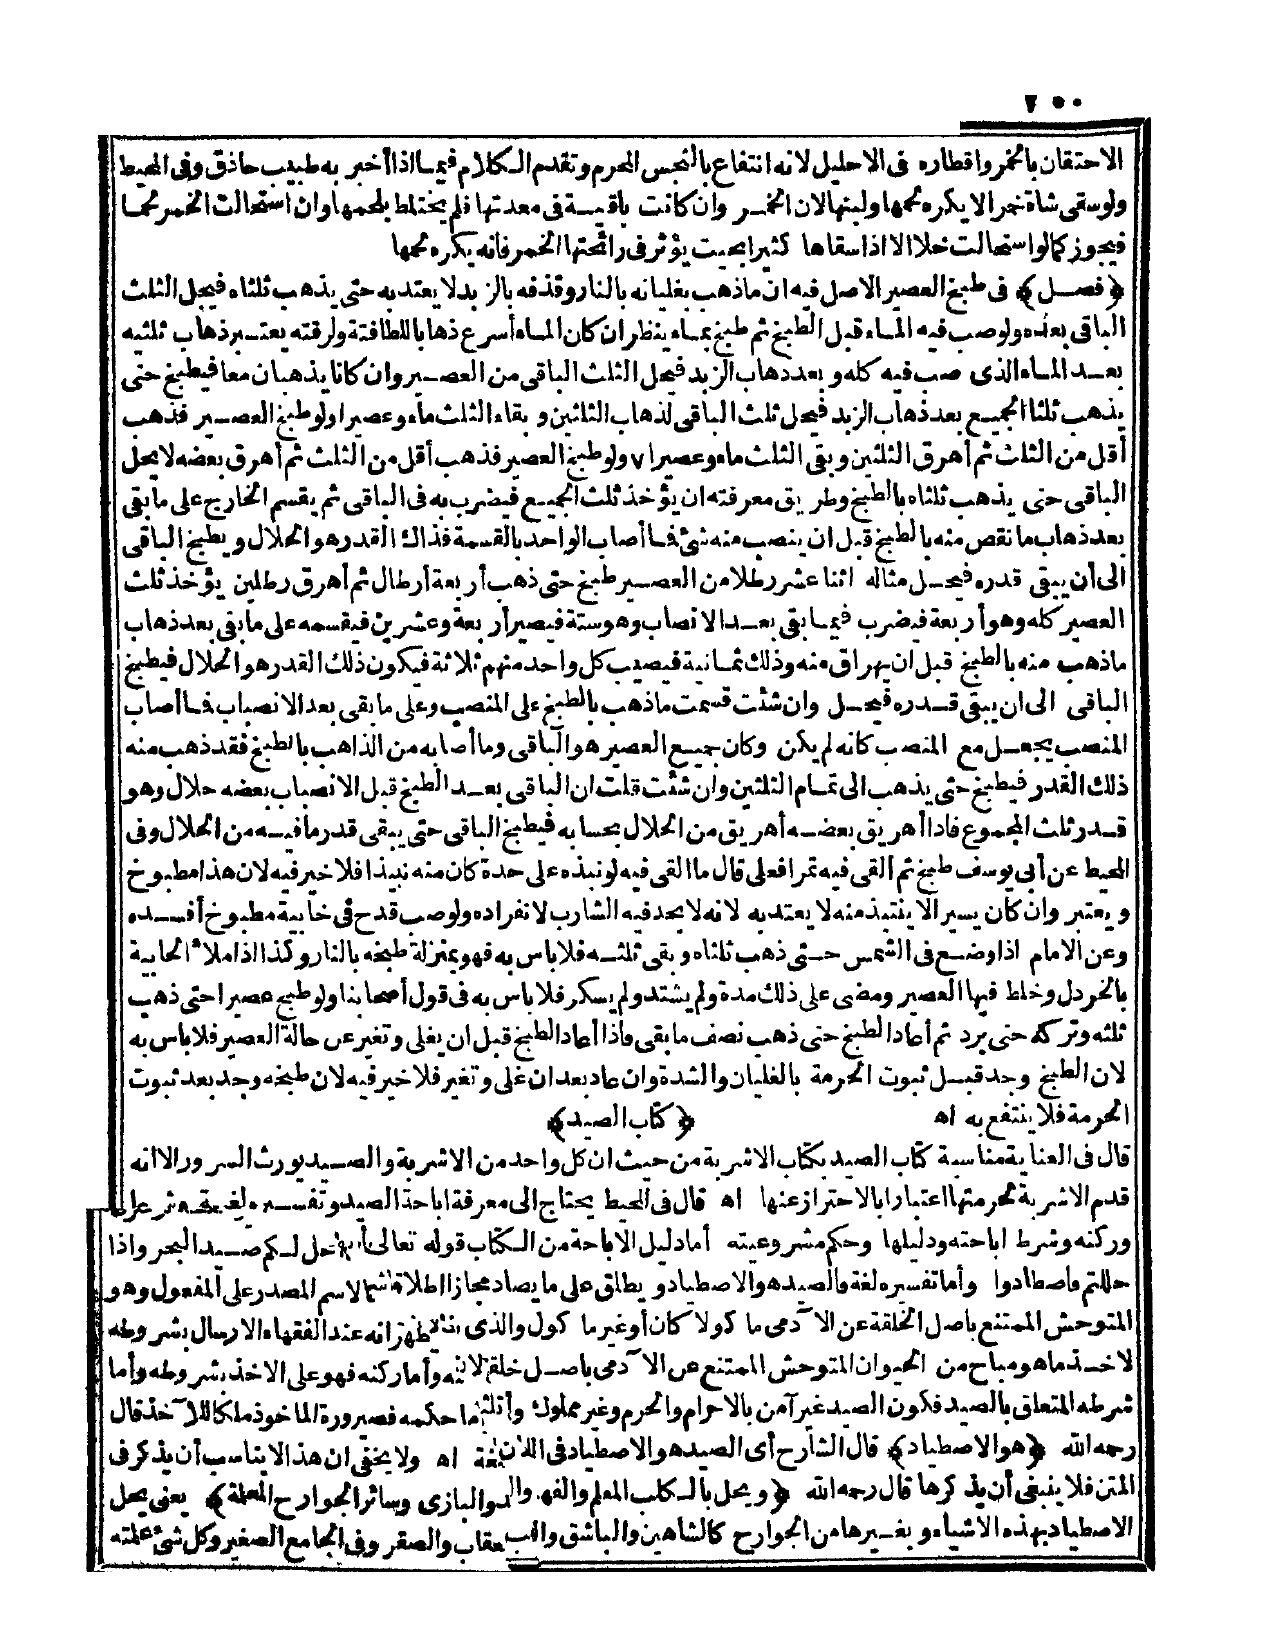 ٢٥٠
الاحتقان بالخمر واقطاره فى الاحليل لانه انتفاع بالنجس المحرم وتقدم الكلام فيما اذا أخبر به طبيب حاذق وفى المحيط
ولوسقى شاة خمرا لا يكره لحمها ولبنها لان الخمر وان كانت باقية فى معدتها فلم يختلط بلحمها وان استحالت الخمر لحما
فيجوز كمالو استحالت خلا الا اذا سقاها كثيرا بحيث يؤثر فى رائحتها الخمر فانه يكره لحمها
﴿فصل﴾ فى طبخ العصير الاصل فيه ان ماذهب بغليانه بالنار وقذفه بالزبد لا يعتد به حتى يذهب ثلثاه فيحل الثلث
الباقى بعده ولوصب فيه الماء قبل الطبخ ثم طبخ بماء ينظر ان كان الماء أسرع ذهابا للطافته ولرقته يعتبر ذهاب ثلثيه
بعد الماء الذى صب فيه كله وبعد ذهاب الزبد فيحل الثلث الباقى من العصير وان كانا يذهبان معا فيطبخ حتى
يذهب ثلثا الجميع بعد ذهاب الزبد فيحل ثلث الباقى لذهاب الثلثين وبقاء الثلث ماء وعصيرا ولو طبخ العصير فذهب
أقل من الثلث ثم أهرق الثلثين وبقى الثلث ماء وعصيرا ٧ ولو طبخ العصير فذهب أقل من الثلث ثم أهرق بعضه لا يحل
الباقى حتى يذهب ثلثاه بالطبخ وطريق معرفته ان يؤخذ ثلث الجميع فيضرب به فى الباقى ثم يقسم الخارج على مابقى
بعد ذهاب ما نقص منه بالطبخ قبل ان ينصب منه شئ فما أصاب الواحد بالقسمة فذاك القدر هو الحلال ويطبخ الباقى
الى أن يبقى قدره فيحل مثاله اثنا عشر رطلا من العصير طبخ حتى ذهب أربعة أرطال ثم أهرق رطلين يؤخذ ثلث
العصير كله وهو أربعة فيضرب فيما بقى بعد الانصاب وهو ستة فيصير أربعة وعشرين فيقسمه على مابقى بعد ذهاب
ماذهب منه بالطبخ قبل ان يهراق منه وذلك ثمانية فيصيب كل واحد منهم ثلاثة فيكون ذلك القدر هو الحلال فيطبخ
الباقى الى ان يبقى قدره فيحل وان شئت قسمت ماذهب بالطبخ على المنصب وعلى ما بقى بعد الانصباب فما أصاب
المنصب يجعل مع المنصب كانه لم يكن وكان جميع العصير هو الباقى وما أصابه من الذاهب بالطبخ فقد ذهب منه
ذلك القدر فيطبخ حتى يذهب الى تمام الثلثين وان شئت قلت ان الباقى بعد الطبخ قبل الانصباب بعضه حلال وهو
قدر ثلث المجموع فاذا أهريق بعضه أهريق من الحلال بحسابه فيطبخ الباقى حتى يبقى قدر مافيه من الحلال وفى
المحيط عن أبى يوسف طبخ ثم ألقى فيه تمرا فغلى قال ما القى فيه لو نبذه على حدة كان منه نبيذا فلا خير فيه لان هذا مطبوخ
ويعتبر وان كان يسيرا لا ينتبذ منه لا يعتد به لانه لا يحد فيه الشارب لانفراده ولو صب قدح فى خابية مطبوخ أفسده
وعن الامام اذا وضع فى الشمس حتى ذهب ثلثاه وبقى ثلثه فلا باس به فهو بمنزلة طبخه بالنار وكذا اذا ملأ الخابية
بالخردل وخلط فيها العصير ومضى على ذلك مدة ولم يشتد ولم يسكر فلا باس به فى قول أصحابنا ولو طبخ عصيرا حتى ذهب
ثلثه وتركه حتى يرد ثم أعاد الطبخ حتى ذهب نصف ما بقى فاذا أعاد الطبخ قبل ان يغلى وتغير عن حالة العصير فلا باس به
لان الطبخ وجد قبل ثبوت الحرمة بالغليان والشدة وان عاد بعد ان غلى وتغير فلا خير فيه لان طبخه وجد بعد ثبوت
الحرمة فلا ينتفع به اه ﴿كتاب الصيد﴾
قال فى العناية مناسبة كتاب الصيد بكتاب الاشربة من حيث ان كل واحد من الاشربة والصيد يورث السرور الا انه
قدم الاشربة لحرمتها اعتبارا بالاحتراز عنها اه قال فى المحيط يحتاج الى معرفة اباحة الصيد وتفسيره لغة
وركنه وشرط اباحته ودليلها وحكم مشروعيته أما دليل الاباحة من الكتاب قوله تعالى أحل لكم صيد البحر واذا
حللتم فاصطادوا وأما تفسيره لغة فالصيد هو الاصطياد ويطلق على ما يصاد مجازا اطلاقا لاسم المصدر على المفعول وهو
المتوحش الممتنع باصل الخلقة عن الآدمى ماكولا كان أو غير ماكول والذى يظهر انه عند الفقهاء الارسال بشروطه
لاخذ ماهو مباح من الحيوان المتوحش الممتنع عن الآدمى باصل خلقته وأما ركنه فهو على الاخذ بشروطه وأما
شرطه المتعلق بالصيد فكون الصيد غير آمن بالاحرام والحرم وغير مملوك وأما حكمه فصيرورة الماخوذ ملكا للآخذ قال
رحمه الله ﴿هو الاصطياد﴾ قال الشارح أى الصيد هو الاصطياد فى اللغة اه ولا يخفى ان هذا لا يناسب أن يذكر فى
المتن فلا ينبغى أن يذكرها قال رحمه الله ﴿ويحل بالكلب المعلم والفهد والبازى وسائر الجوارح المعلمة﴾ يعنى يحل
الاصطياد بهذه الاشياء وبغيرها من الجوارح كالشاهين والباشق والعقاب والصقر وفى الجامع الصغير وكل شئ علمته